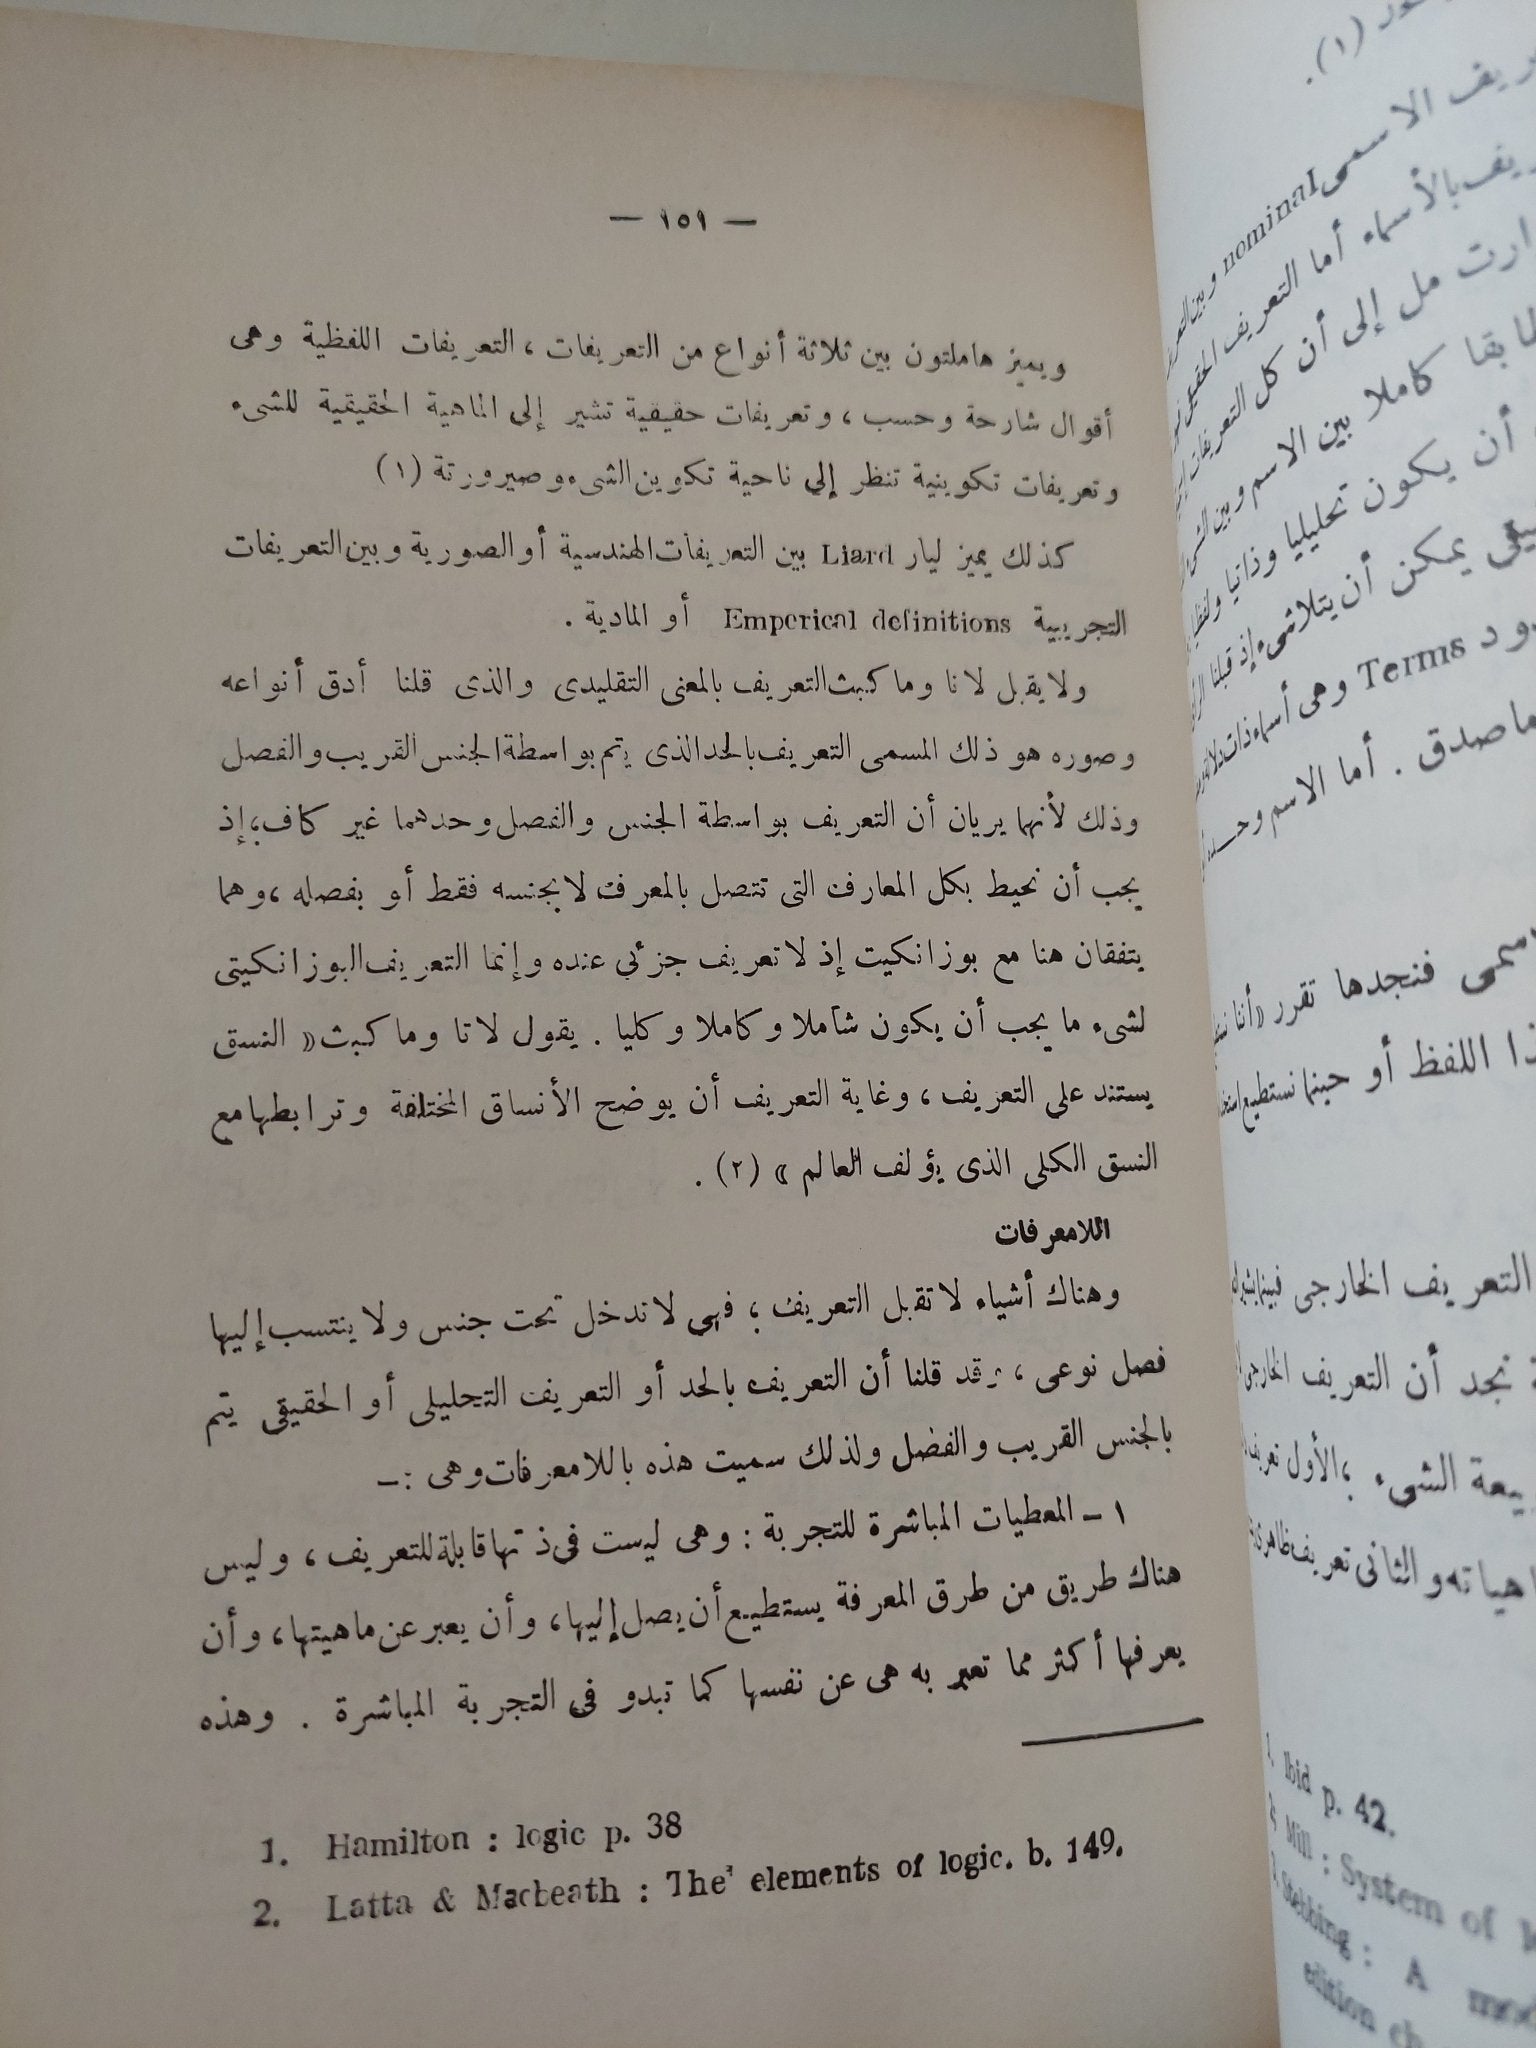 — ١٥١ —
ويميز هاملتون بين ثلاثة أنواع من التعريفات ، التعريفات اللفظية وهى
أقوال شارحة وحسب ، وتعريفات حقيقية تشير إلى الماهية الحقيقية للشىء
وتعريفات تكوينية تنظر إلى ناحية تكوين الشىء وصيرورتة (١)
كذلك يميز ليار Liard بين التعريفات الهندسية أو الصورية وبين التعريفات
التجريبية Emperical definitions أو المادية .
ولا يقبل لانا وماكبث التعريف بالمعنى التقليدى والذى قلنا أدق أنواعه
وصوره هو ذلك المسمى التعريف بالحد الذى يتم بواسطة الجنس القريب والفصل
وذلك لأنهما يريان أن التعريف بواسطة الجنس والفصل وحدهما غير كاف ؛ إذ
يجب أن نحيط بكل المعارف التى تتصل بالمعرف لا بجنسه فقط أو بفصله ، وهما
يتفقان هنا مع بوزانكيت إذ لا تعريف جزئى عنده وإنما التعريف البوزانكيتى
لشىء ما يجب أن يكون شاملا وكاملا وكليا . يقول لاتا وماكبث « النسق
يستند على التعريف ، وغاية التعريف أن يوضح الأنساق المختلفة وترابطها مع
النسق الكلى الذى يؤلف العالم » (٢) .
اللامعرفات
وهناك أشياء لا تقبل التعريف ؛ فهى لا تدخل تحت جنس ولا ينتسب إليها
فصل نوعى ، وقد قلنا أن التعريف بالحد أو التعريف التحليلى أو الحقيقى يتم
بالجنس القريب والفصل ولذلك سميت هذه باللامعرفات وهى :-
١ – المعطيات المباشرة للتجربة : وهى ليست فى ذ تها قابلة للتعريف ، وليس
هناك طريق من طرق المعرفة يستطيع أن يصل إليها ، وأن يعبر عن ماهيتها ، وأن
يعرفها أكثر مما تعبر به هى عن نفسها كما تبدو فى التجربة المباشرة . وهذه
1. Hamilton : logic p. 38
2. Latta & Macbeath : The elements of logic. b. 149.
(١) .
الاسمى nominal وبين
بالأسماء أما التعريف الحقيقى
مل إلى أن كل التعريفات
كاملا بين الاسم وبين
أن يكون تحليليا وذاتيا
يمكن أن يتلاشىء إذ قبلنا
Terms وهى أسماء ذات دلالة
ماصدق . أما الاسم
فنجدها تقرر « أننا
اللفظ أو حينما نستطيع
التعريف الخارجى فبينما
نجد أن التعريف الخارجى
الشىء ؛ الأول
والثانى تعريف
1. Ibid p. 42.
Mill : System of
Stebbing : A
edition ch